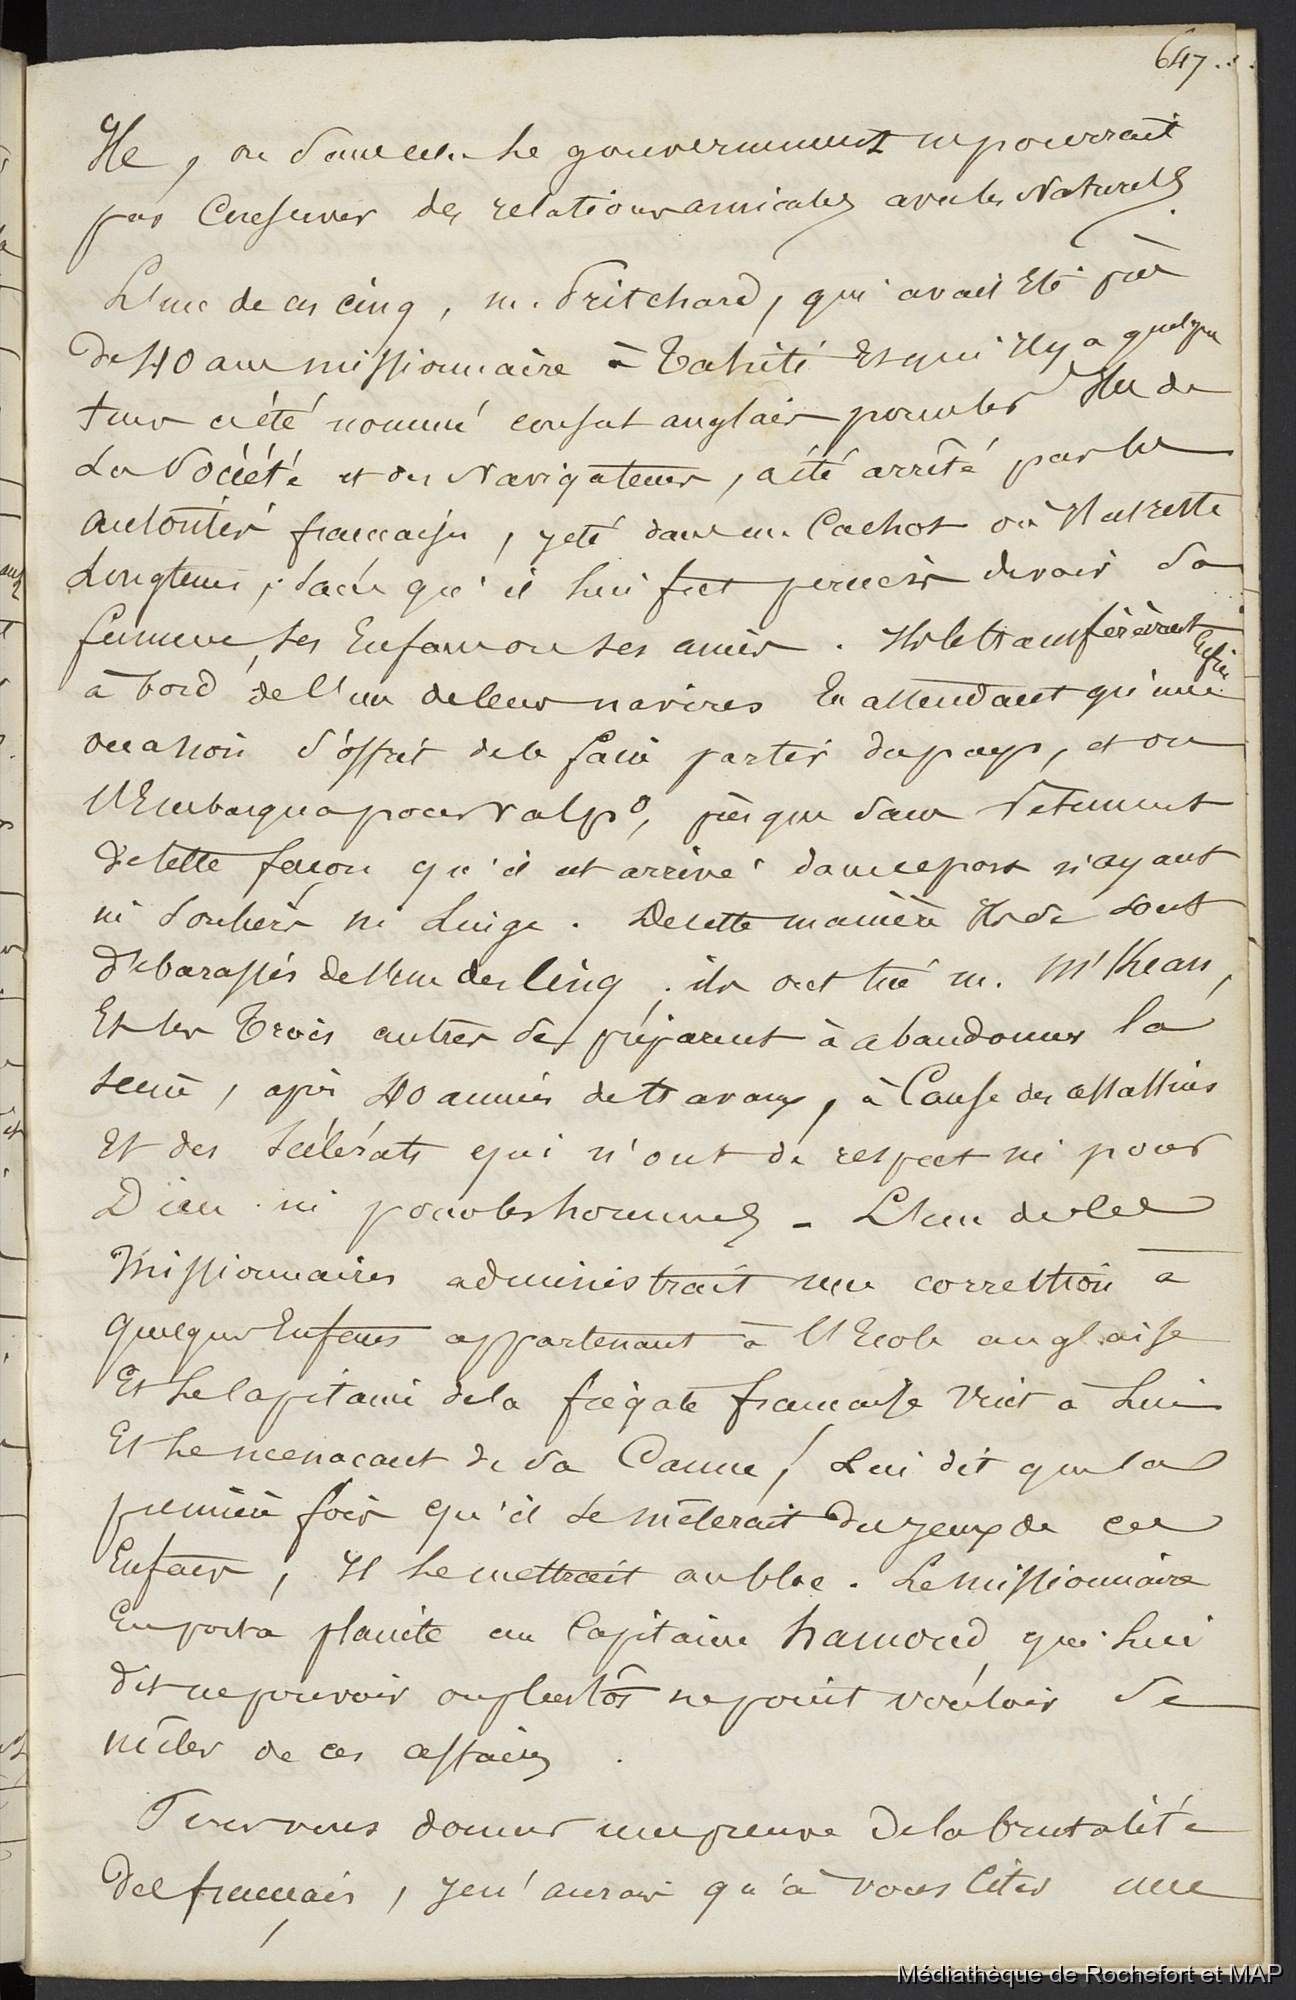 647...
Ile, ou sans cela le gouvernement ne pourrait
pas conserver des relations amicales avec les Naturels.
L'une de ces cinq, m. Pritchard, qui avait été près
de 40 ans missionnaire à Tahiti Et qui il y a quelque
tems a été nommé consul anglais pour les Iles de
La Société et des Navigateurs, a été arrêté par les
autorités françaises, jeté dans un Cachot où Il est resté
Longtems, sans qu'il lui fut permis de voir sa
femme, ses Enfans ou ses amis. Ils le transférèrent Enfin
à bord de l'un de leurs navires En attendant qu'une
occasion s'offrit de le faire partir du pays, et on
l'Embarqua pour Valpo, presque sans vêtemens
de telle façon qu'il est arrivé dans ce port n'ayant
ni souliers ni Linge. De cette manière Ils se sont
débarassés de l'un des cinq; ils ont tué m. M'Kean,
Et les Trois autres se préparent à abandonner la
terre, après 40 années de travaux, à Cause des assassins
Et des scélérats qui n'ont de respect ni pour
Dieu ni pour les hommes - L'un de ces
Missionnaires administrait une correction à
quelques Enfans appartenant à l'Ecole anglaise
Et le Capitaine de la frégate française vint à Lui
Et le menaçant de sa Canne, Lui dit que la
première fois qu'il se mêlerait des jeux de ces
Enfans, Il le mettrait au bloc. Le Missionnaire
En porta plainte au Capitaine hamond qui lui
dit ne pouvoir ou plustôt ne point vouloir se
mêler de ces affaires.
Pour vous donner une preuve de la brutalité
des français, je n'aurai qu'à vous citer une
Médiathèque de Rochefort et MAP